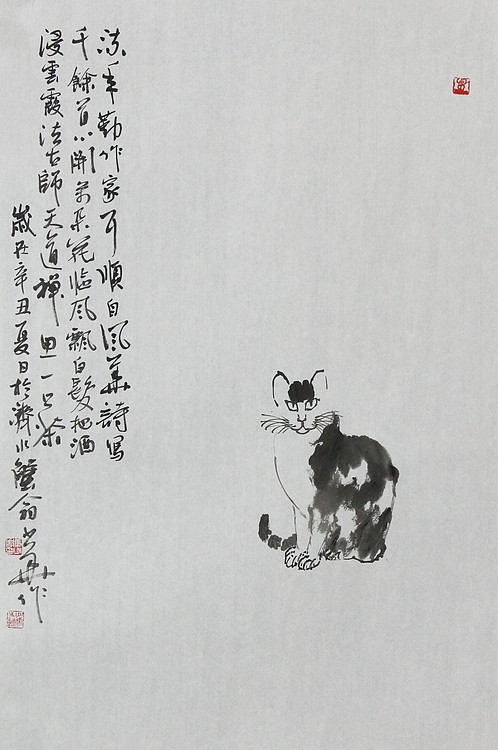 流年勤作家耳順自風華詩寫
千餘首心開萬朵花臨風飄白髮把酒
浸雲霞法古師天道禪一只茶
歲在辛丑夏日於濟水蟹翁華作